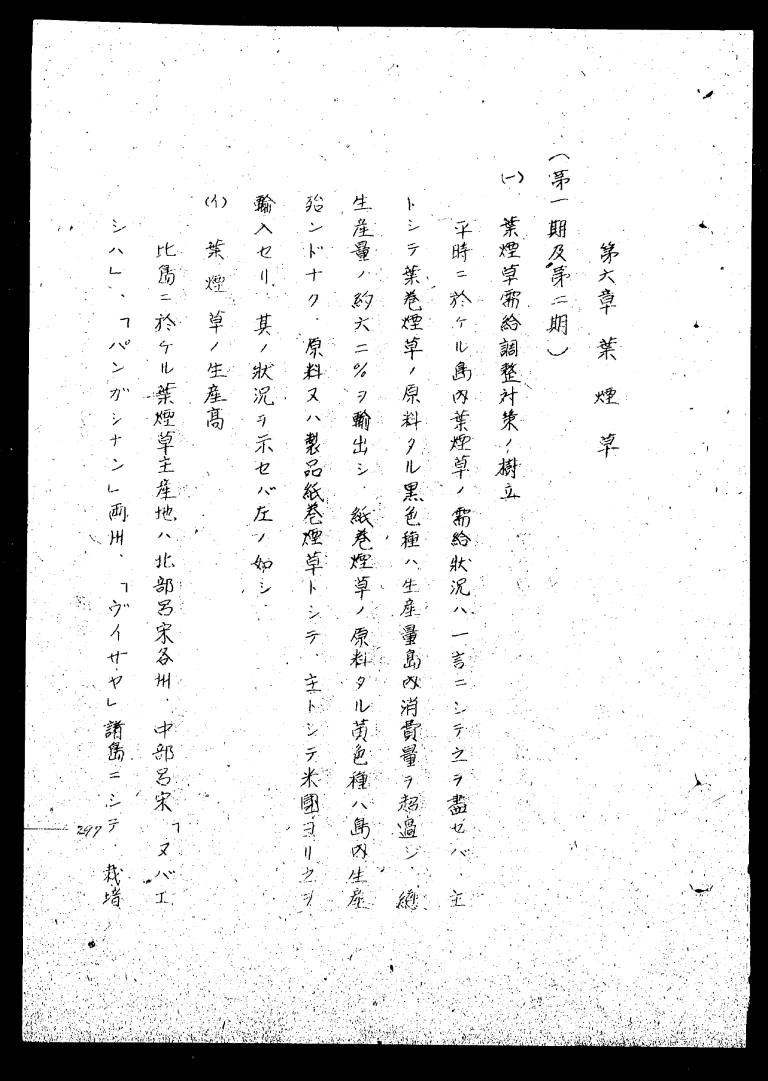 第六章　葉煙草
（第一期及第二期）
(一)　葉煙草需給調整対策ノ樹立
平時ニ於ケル島内葉煙草ノ需給狀況ハ一言ニシテ之ヲ盡セバ、主
トシテ葉巻煙草ノ原料タル黒色種ハ生産量島内消費量ヲ超過シ、總
生産量ノ約六二％ヲ輸出シ、紙巻煙草ノ原料タル黄色種ハ島内生産
殆ンドナク、原料又ハ製品紙巻煙草トシテ、主トシテ米國ヨリ之ヲ
輸入セリ、其ノ狀況ヲ示セバ左ノ如シ、
(イ)　葉煙草ノ生産高
比島ニ於ケル葉煙草主産地ハ北部呂宋各州、中部呂宋「ヌバエ
シハ」、「パンガシナン」両州、「ヴイサヤ」諸島ニシテ、栽培
297